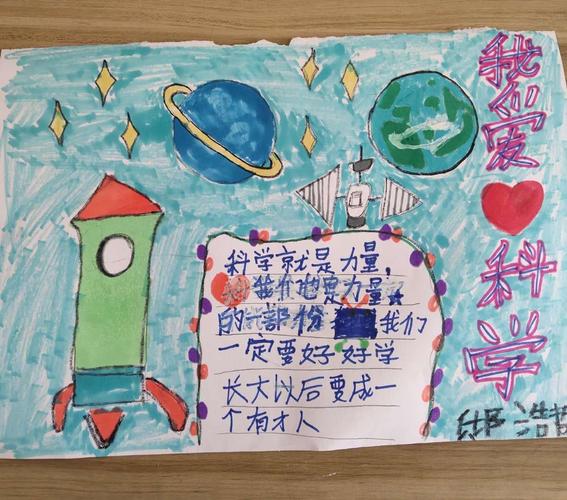 我们爱科学
科学就是力量,
我们也是力量
的一部份我们
一定要好好学
长大以后要成一
个有才人
浩